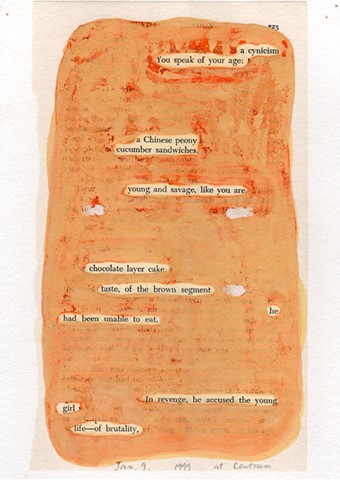 225
a cynicism
You speak of your age:
a Chinese peony
cucumber sandwiches.
young and savage, like you are.
chocolate layer cake.
taste, of the brown segment
he
had been unable to eat,
In revenge, he accused the young
girl
life—of brutality,
Jan. 9, 1999 at Centrum